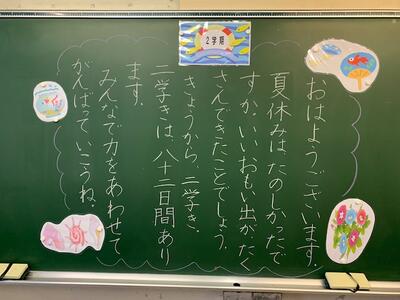 2学期
おはようございます。
夏休みは、たのしかったで
すか。いいおもい出がたく
さんできたことでしょう。
きょうから、二学き。
二学きは、八十二日間あり
ます。
みんなで力をあわせて
がんばっていこうね。